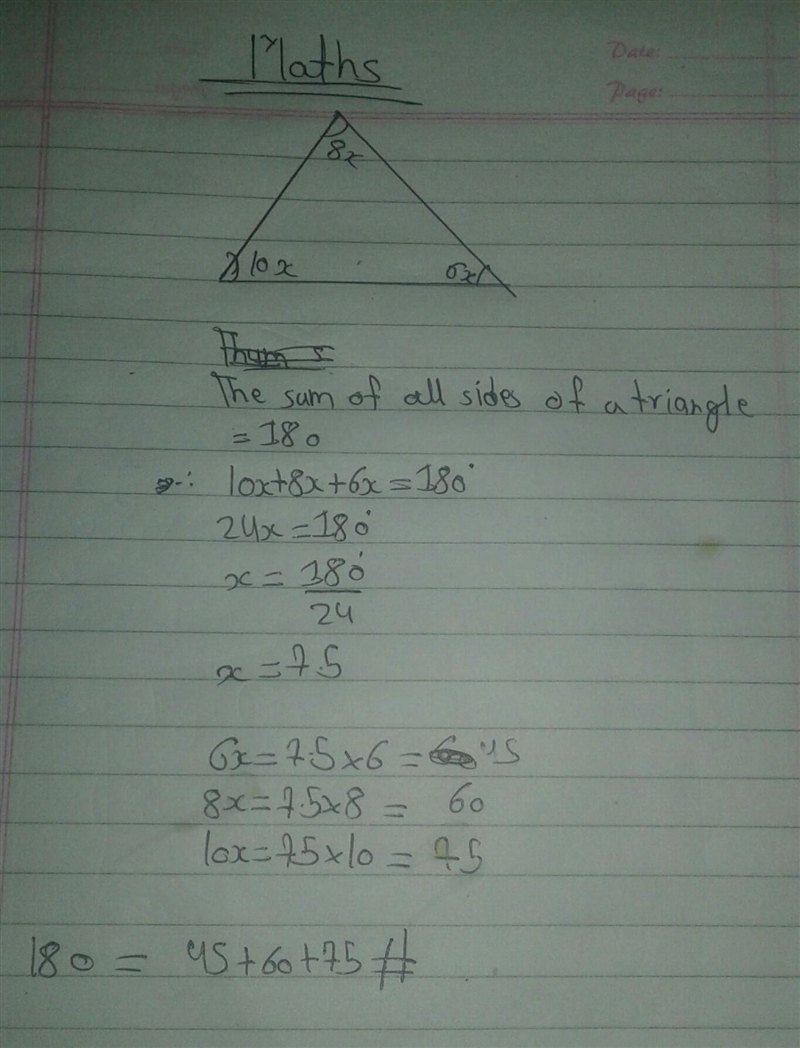 Maths
Date:
Page:
8x
10x
6x
The sum of all sides of a triangle
=180
∴ 10x+8x+6x=180°
24x=180°
x=180°
24
x=7.5
6x=7.5×6=45
8x=7.5×8= 60
10x=7.5×10=75
180 = 45+60+75 #